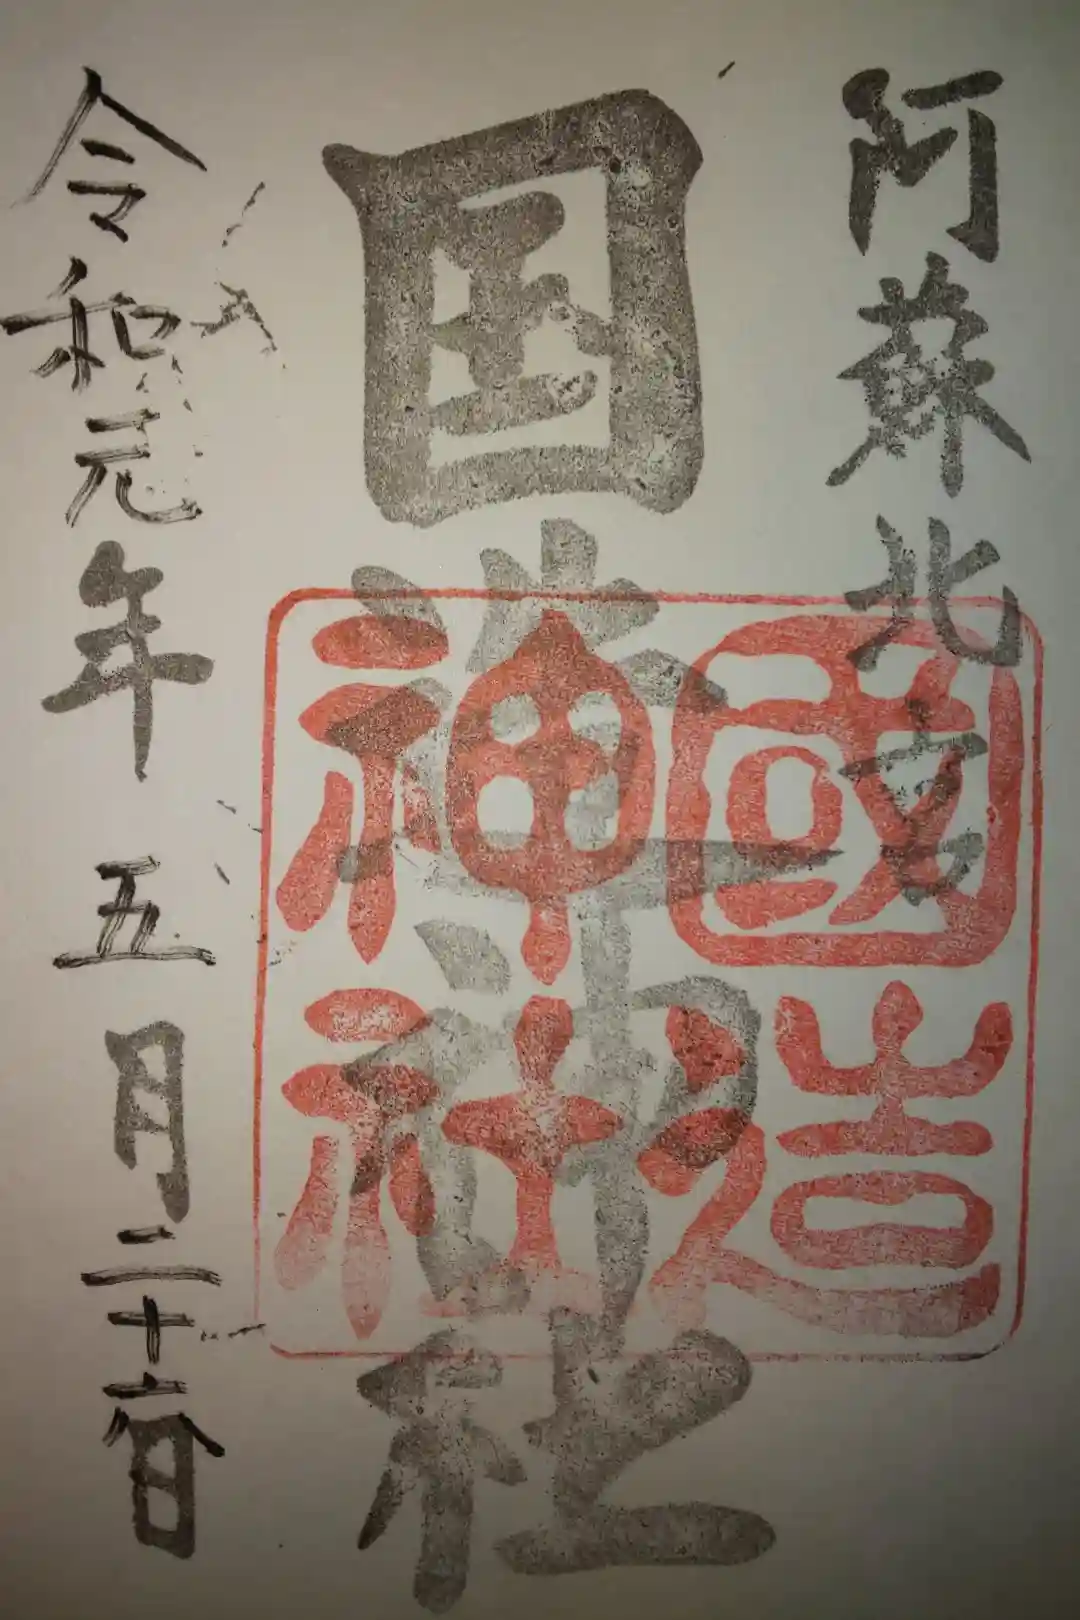 阿蘇北宮
国造神社
國造
神社
令和元年五月二十六日